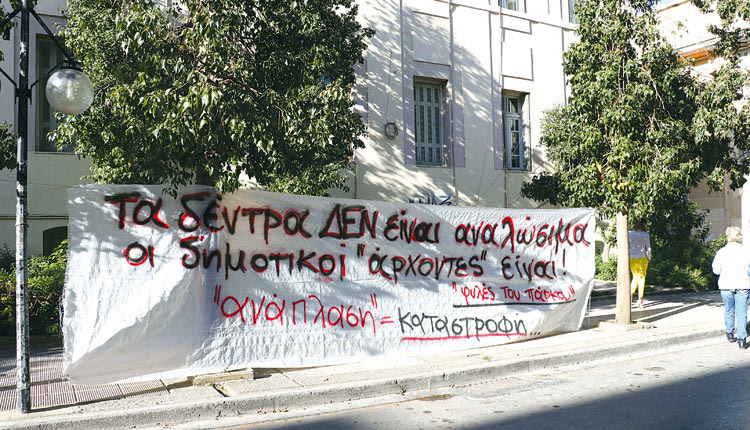 Τα δέντρα ΔΕΝ είναι αναλώσιμα
οι δημοτικοί "άρχοντες" είναι!
"φυλές του πάρκου"
"ανάπλαση" = καταστροφή...